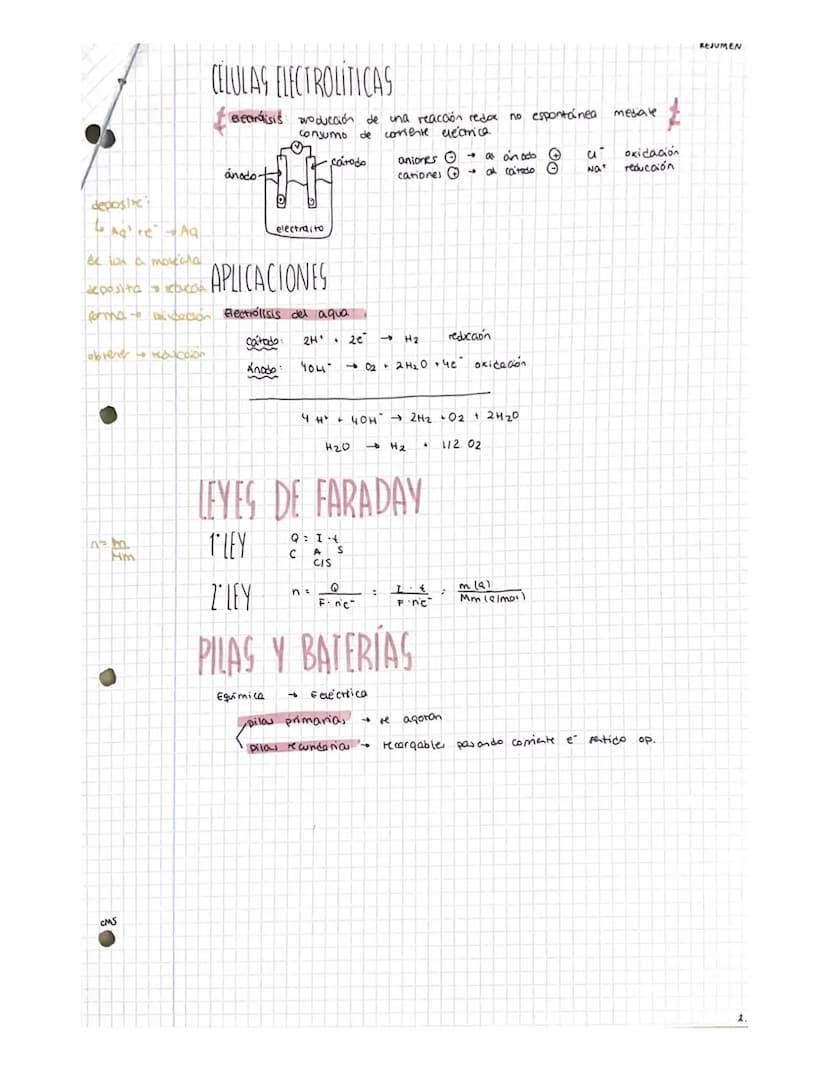 RESUMEN
CÉLULAS ELECTROLÍTICAS
Electrólisis: producción de una reacción redox no espontánea mediante
consumo de corriente eléctrica
ánodo
cátodo
electrolito
aniones ⊖ → al ánodo ⊕ Cl⁻ oxidación
cationes ⊕ → al cátodo ⊖ Na⁺ reducción
deposite:
↳ Ag⁺ + e⁻ → Ag
de ion a molécula
deposita → reducción
forma → oxidación
obtener → reducción
APLICACIONES
Electrólisis del agua
Cátodo: 2H⁺ + 2e⁻ → H2 reducción
Ánodo: 4OH⁻ → O2 + 2H2O + 4e⁻ oxidación
4H⁺ + 4OH⁻ → 2H2 + O2 + 2H2O
H2O → H2 + 1/2 O2
LEYES DE FARADAY
1ª LEY Q = I · t
C A S
C/S
n = m / Mm
2ª LEY n = Q / F · nºe⁻ = I · t / F · nºe⁻ = m (g) / Mm (g/mol)
PILAS Y BATERÍAS
Equímica → Eeléctrica
pilas primarias → se agotan
pilas secundarias → recargables pasando corriente e⁻ sentido op.
CMS
2.